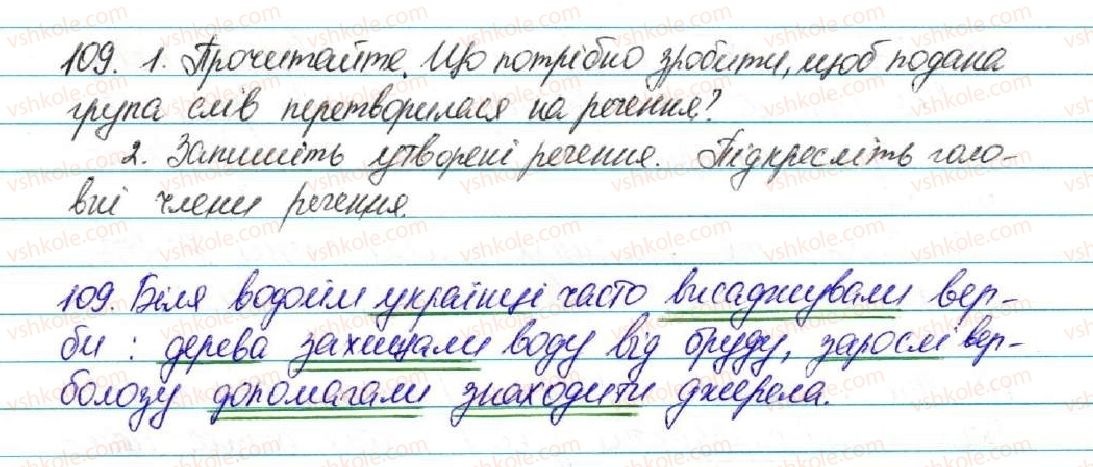 109. 1. Прочитайте. Що потрібно зробити, щоб подана
група слів перетворилася на речення?
2. Запишіть утворені речення. Підкресліть голо-
вні члени речення.
109. Біля водойм українці часто висаджували вер-
би : дерева захищали воду від бруду, зарослі вер-
болозу допомагали знаходити джерела.